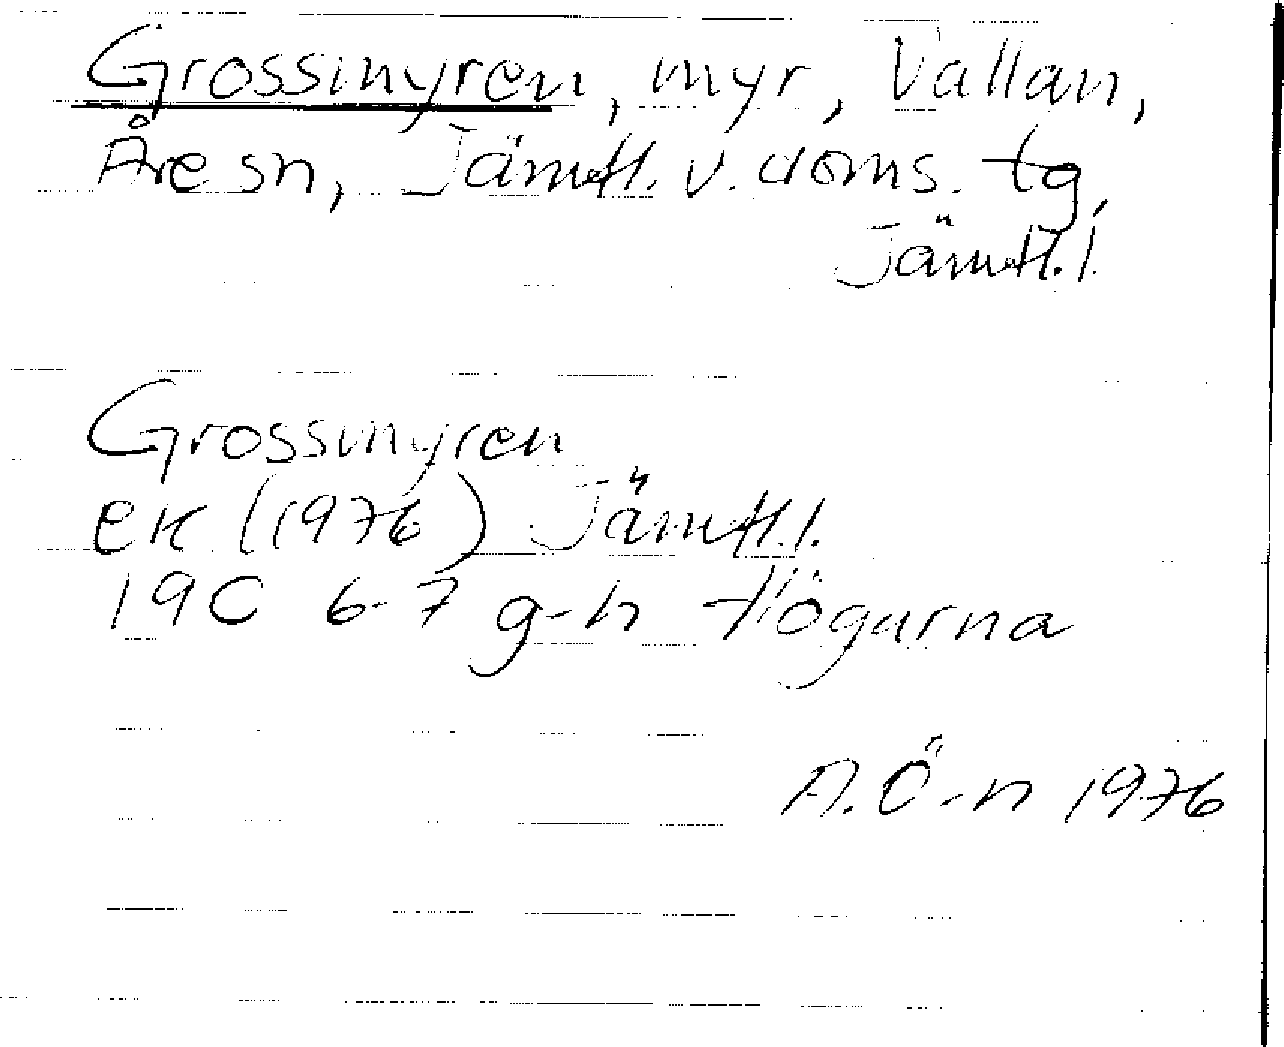 Grossmyren, myr, Vallan,
Åre sn, Jämtl. v. doms. tg,
Jämtl. l.
Grossmyren
EK (1976) Jämtl. l.
19C 6-7 g-h Högarna
A. Ö-n 1976